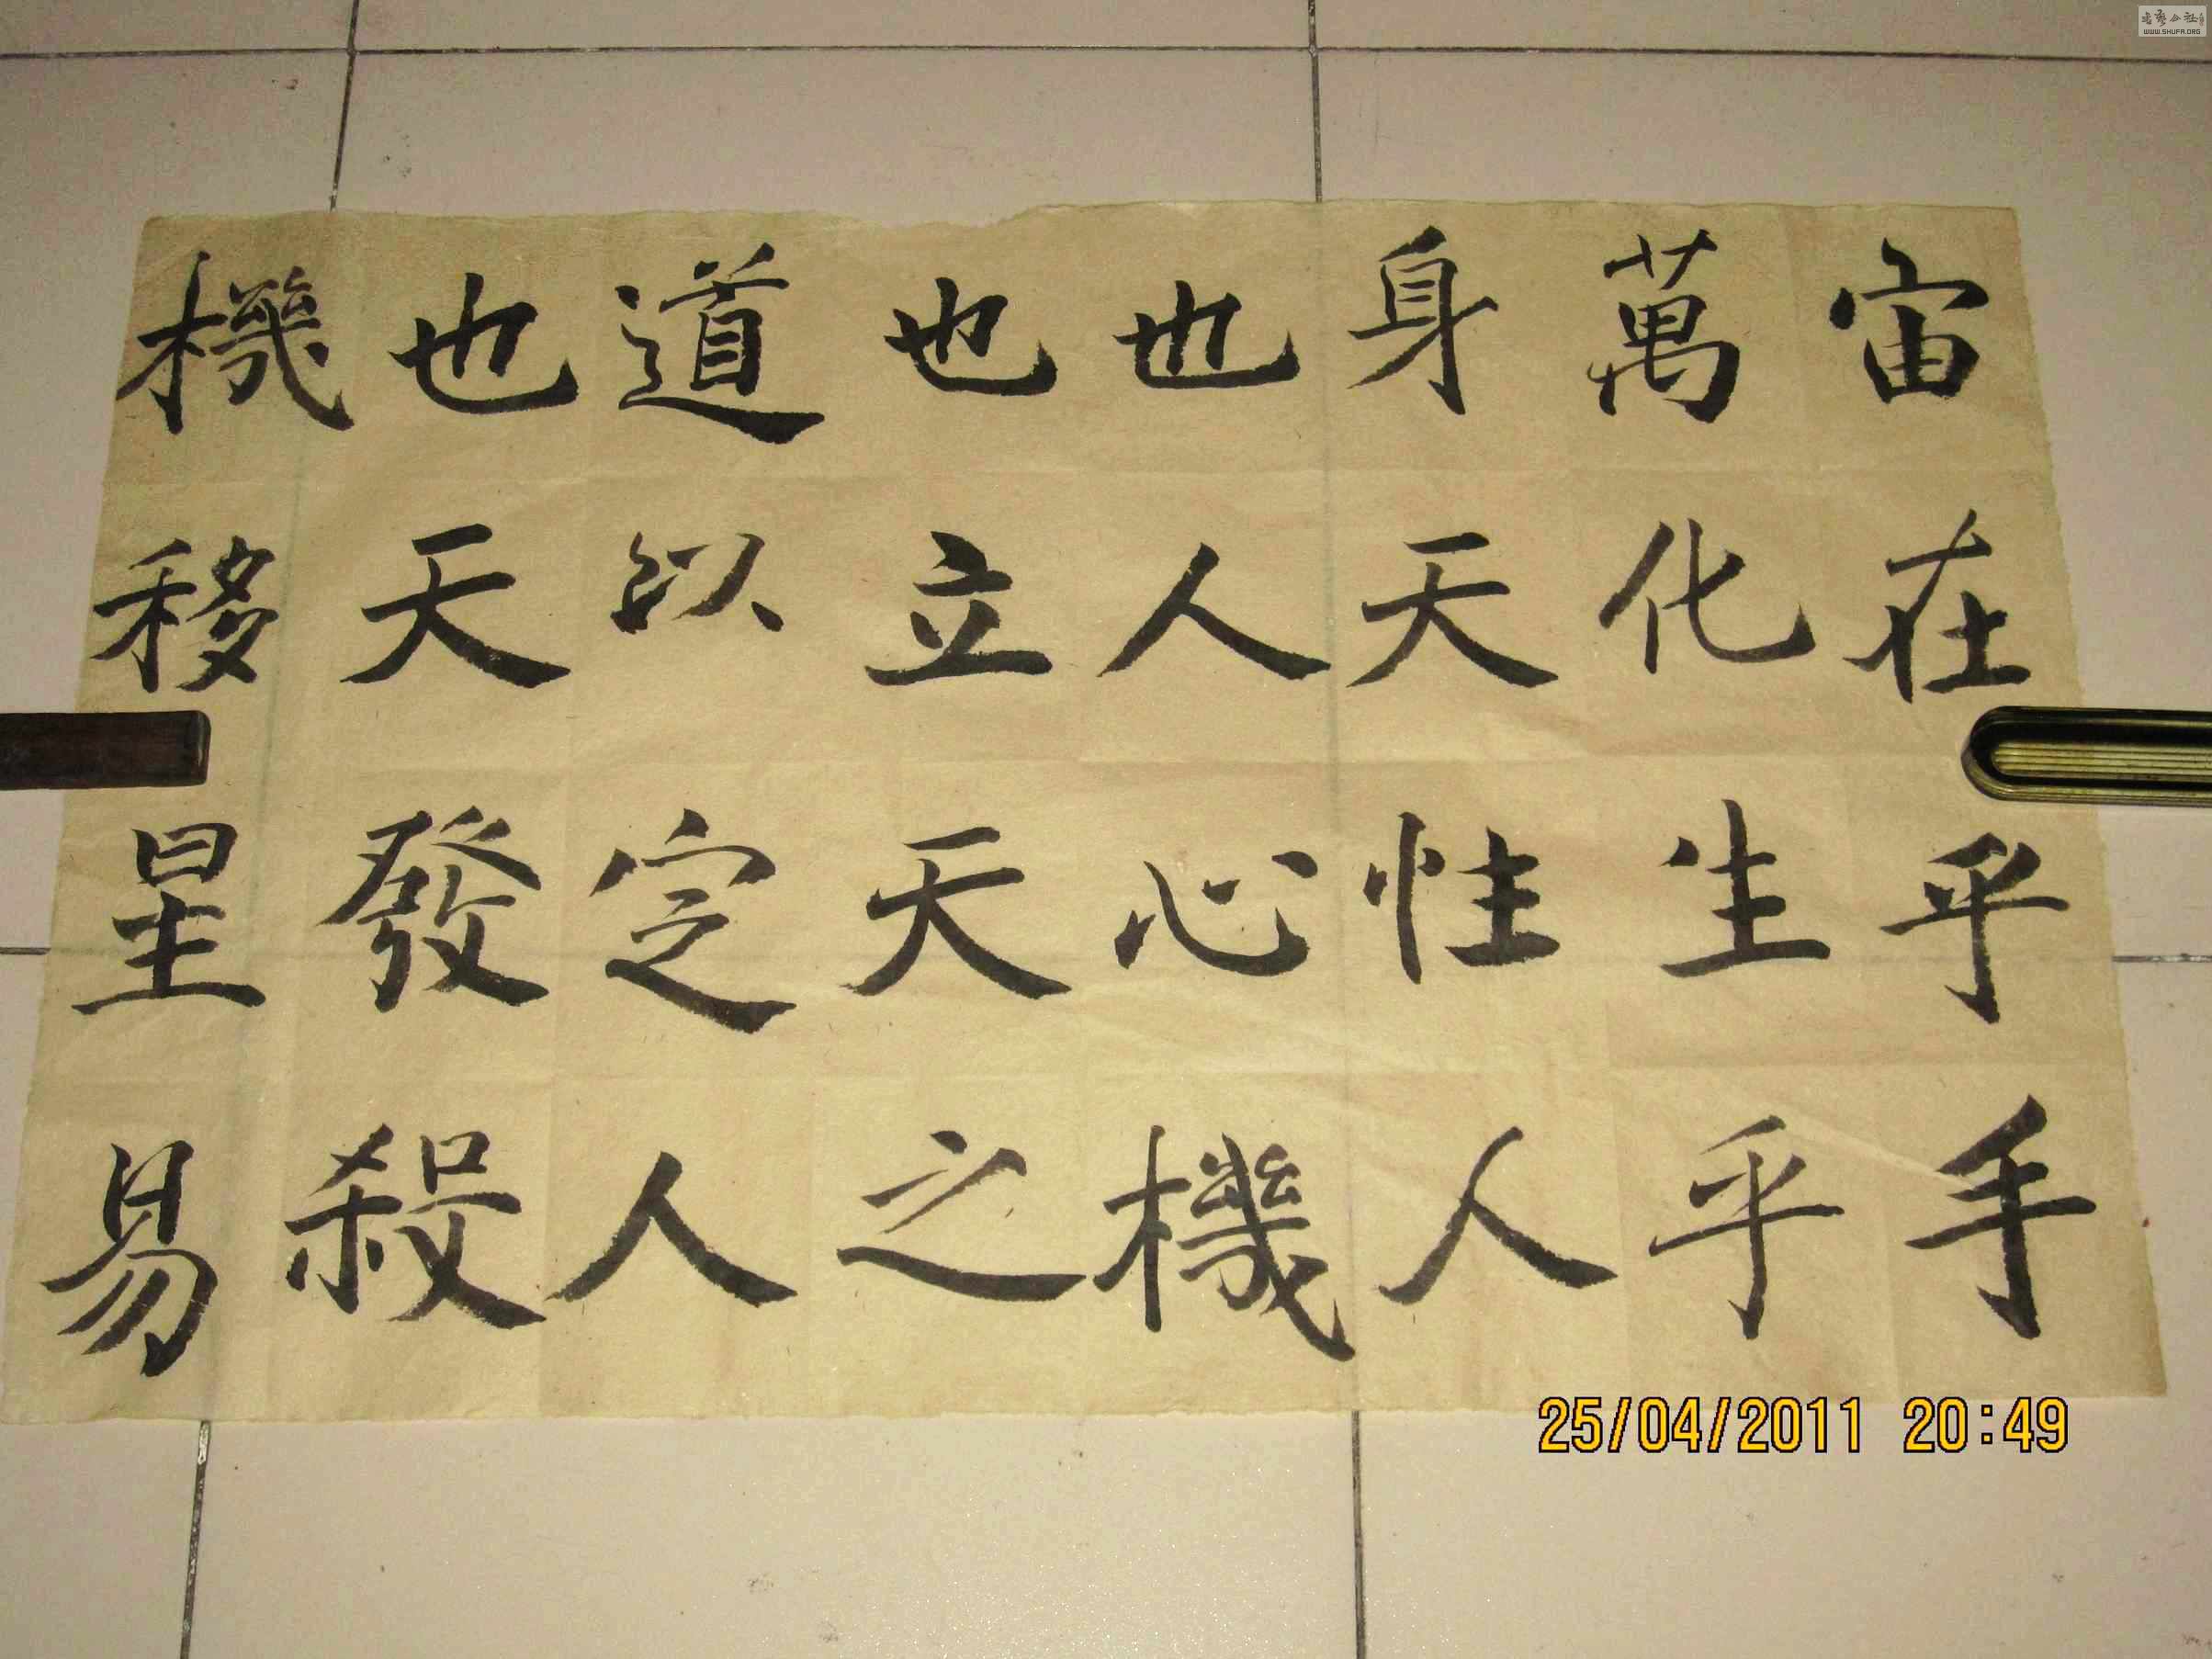 宙在乎手
萬化生乎
身天性人
也人心機
也立天之
道以定人
也天發殺
機移星易
25/04/2011 20:49
WWW.SHUFA.ORG